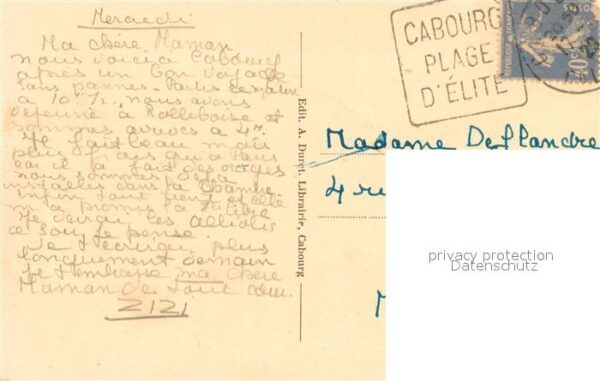 Mercredi
Ma chère Maman
nous voici à Cabourg
après un bon voyage
sans pannes. Partis ce matin
à 10h ½, nous avons
déjeuné à Rolleboise et
sommes arrivés à 4h.
Il fait beau mais
plus qu'à Paris
car il a fait des orages
nous sommes déjà
installés dans la chambre
enfin tout bien et elle
m'a promis
Je verrai les
ce soir je pense.
Je t'écrirai plus
longuement demain
je t'embrasse ma chère
Maman de tout cœur.
ZIZI
Edit. A. Duret, Librairie, Cabourg
CABOURG
PLAGE
D'ÉLITE
Madame Deflandre
4 ru
M
privacy protection
Datenschutz